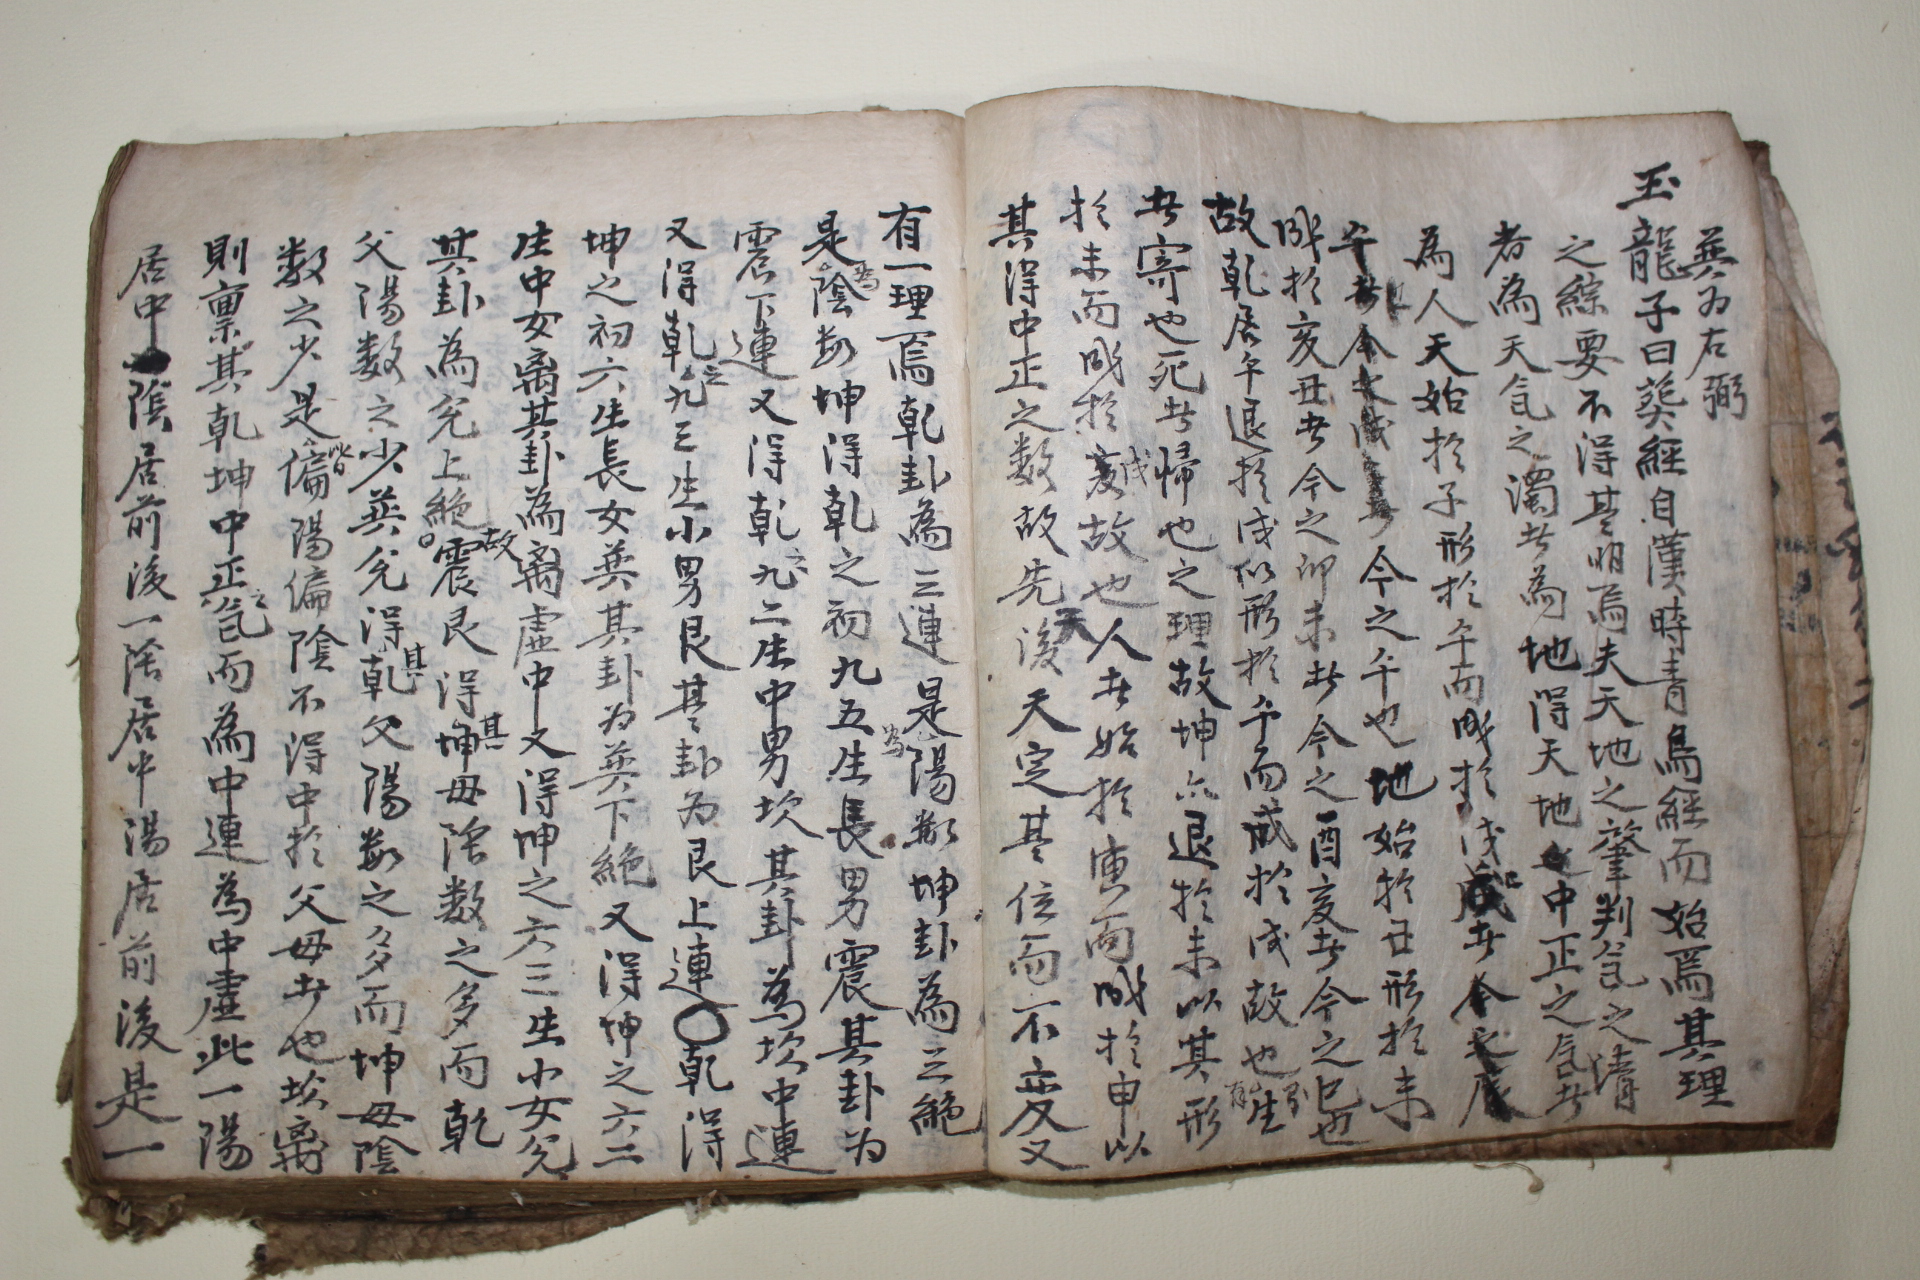 巽为右弼
玉龍子曰葬經自漢時青烏經而始焉其理
之綜要不得其明焉夫天地之肇判气之清
者為天气之濁者為地得天地之中正之气者
為人天始於子形於午而成於戌戌者今之辰
午者今之午也地始於丑形於未
成於亥丑者今之卯未者今之酉亥者今之巳也
故乾居午退於戌以形於午而成於戌故也生
者寄也死者歸也之理故坤亦退於未以其形
於未而成於亥故也人者始於寅而成於申以
其得中正之数故先天後天定其位而不变又
有一理焉乾卦為三連是為陽数坤卦為三絶
是為陰数坤得乾之初九五生長男震其卦为
震下連又得乾之九二生中男坎其卦為坎中連
又得乾之九三生小男艮其卦为艮上連〇乾得
坤之初六生長女巽其卦为巽下絶又得坤之六二
生中女离其卦為离虚中又得坤之六三生小女兌
其卦為兌上絶〇故震艮得其坤母陰数之多而乾
父陽数之少巽兌得其乾父陽数之多而坤母陰
数之少是皆偏陽偏陰不得中於父母者也坎离
則稟其乾坤中正之氣而為中連為中虚此一陽
居中陰居前後一陰居中陽居前後是一